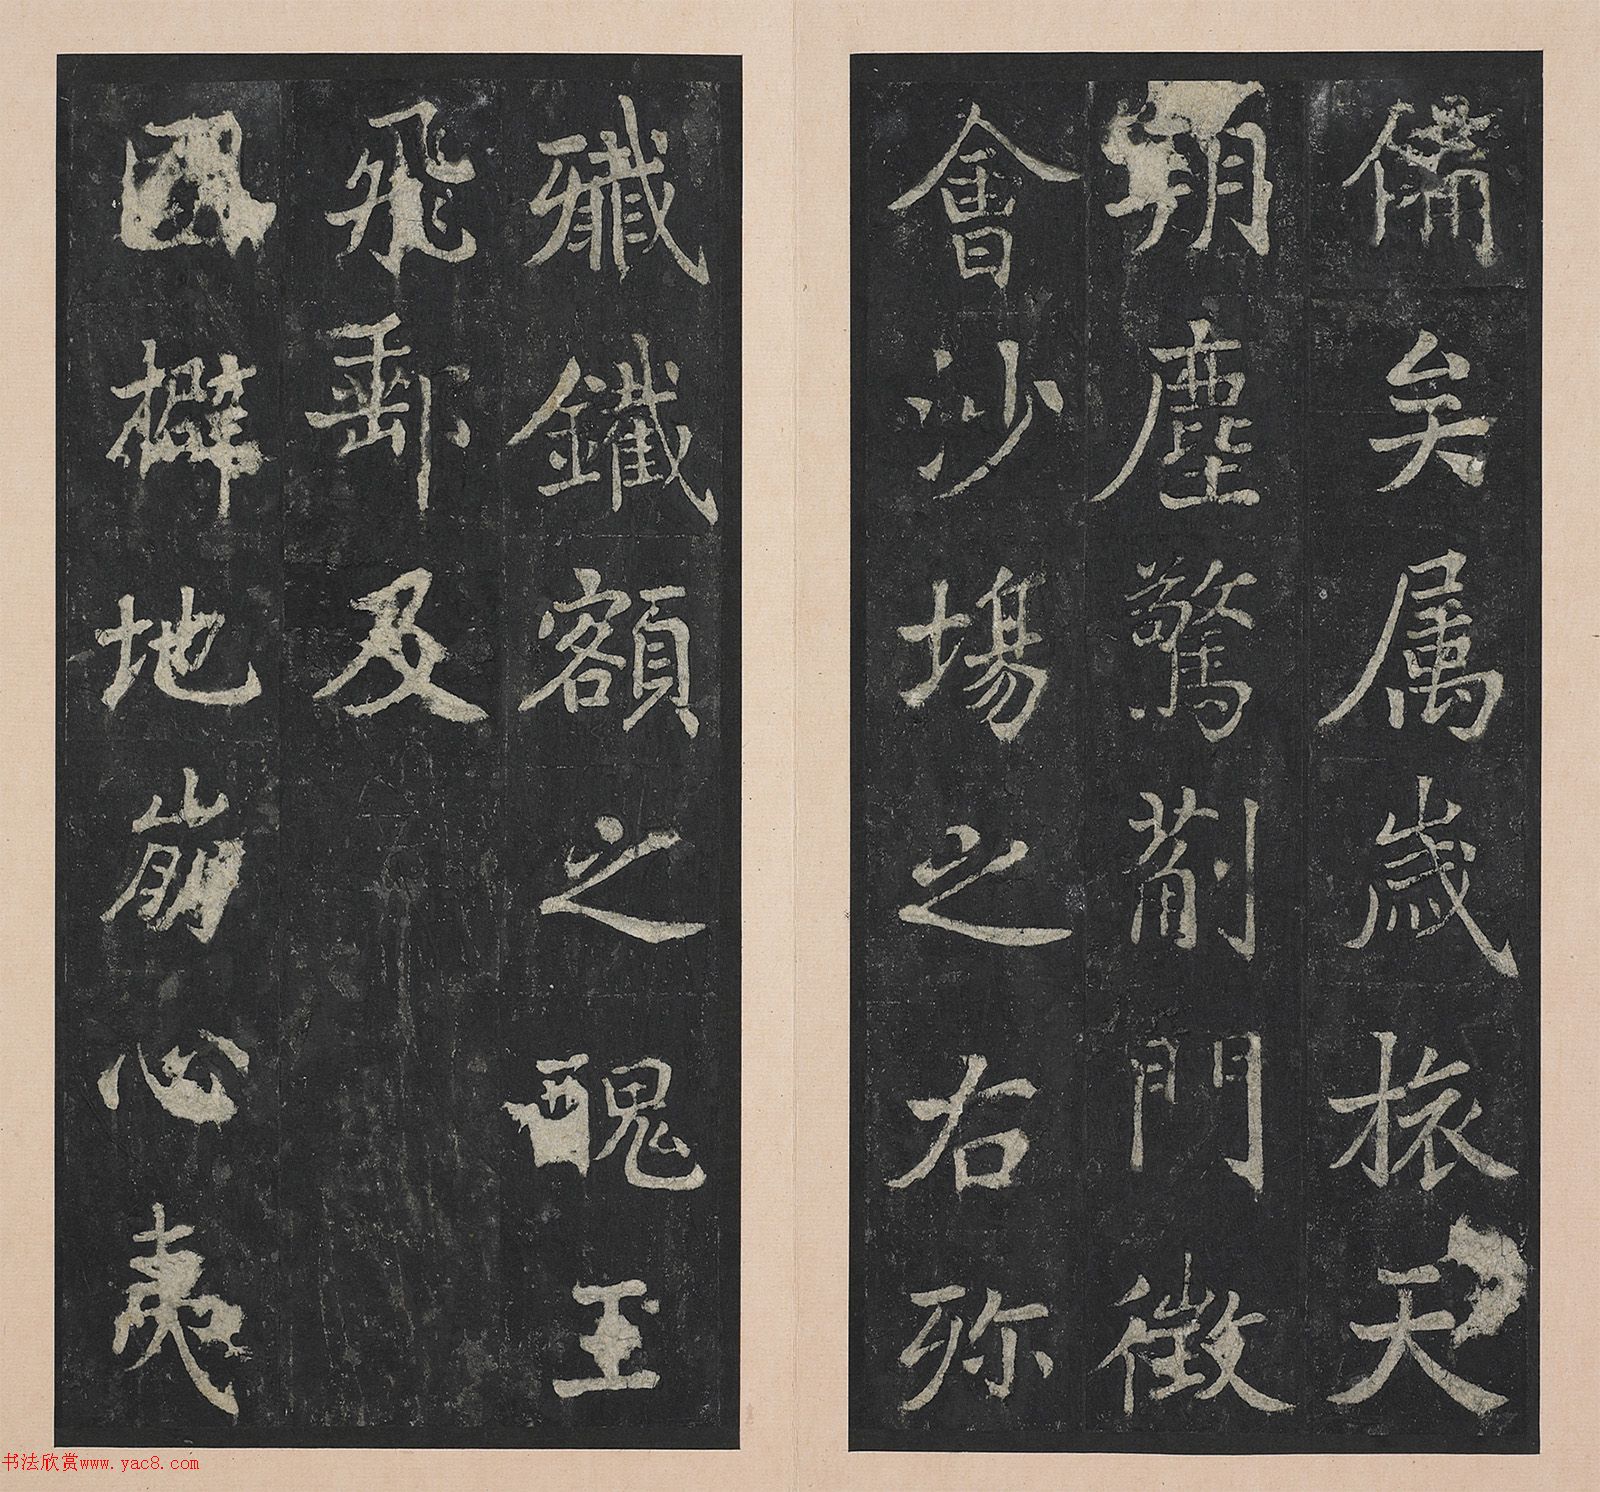 備矣属歲旅天
朔塵驚薊門徵
會沙場之右弥
殱鐵額之醜王
飛郵及
國擗地崩心夷
书法欣赏www.yac8.com